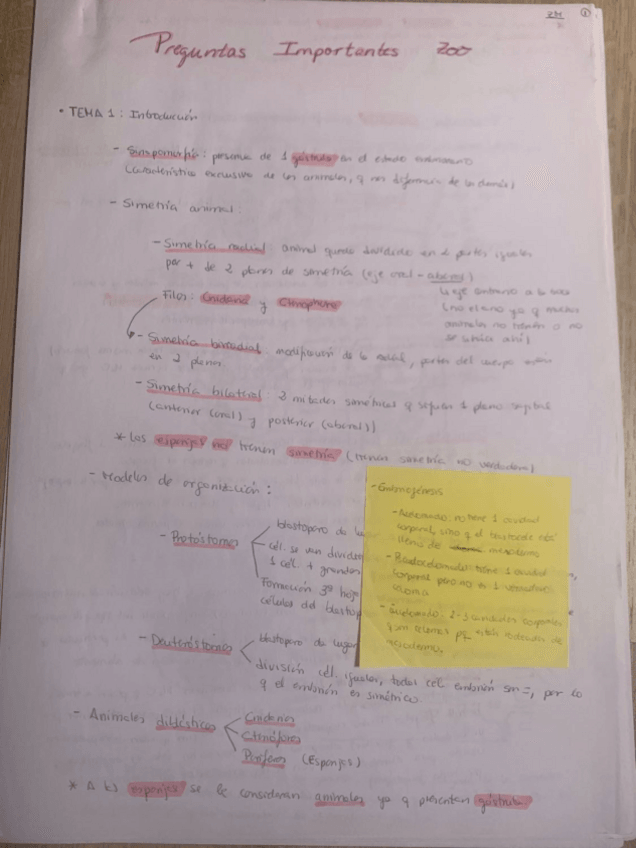 2M ①
Preguntas Importantes Zoo
• TEMA 1: Introducción
- Sinapomorfia: presencia de 1 gástrula en el estado embrionario
(característica exclusiva de los animales, q nos diferencia de los demás)
- Simetría animal:
- Simetría radial: animal queda dividido en 2 partes iguales
por + de 2 planos de simetría (eje oral-aboral)
↳ eje contrario a la boca
(no el ano ya q muchos
animales no tienen o no
se ubica ahí)
Filos: Cnidaria y Ctenophora
- Simetría birradial: modificación de la radial, partes del cuerpo
en 2 planos
- Simetría bilateral: 2 mitades simétricas q siguen 1 plano sagital
(anterior (oral) y posterior (aboral))
* Las esponjas no tienen simetría (tienen simetría no verdadera)
- Modelos de organización:
- Protóstomos
blastoporo da
cél. se van
1 cél. + grandes
Formación 3º
células del
- Deuteróstomos
blastoporo da lugar
división cél. iguales, todas cél. embrión son =, por lo
q el embrión es simétrico.
- Embriogénesis
- Acelomado: no tiene 1 cavidad
corporal, sino q el blastocele está
lleno de mesodermo
- Blastocelomado: tiene 1 cavidad
corporal pero no es 1 verdadero
celoma
- Eucelomado: 2-3 cavidades corporales
q son celomas pq están rodeadas de
mesodermo.
- Animales diblásticos
Cnidarios
Ctenóforos
Poríferos (Esponjas)
* A las esponjas se le consideran animales ya q presentan gástrula